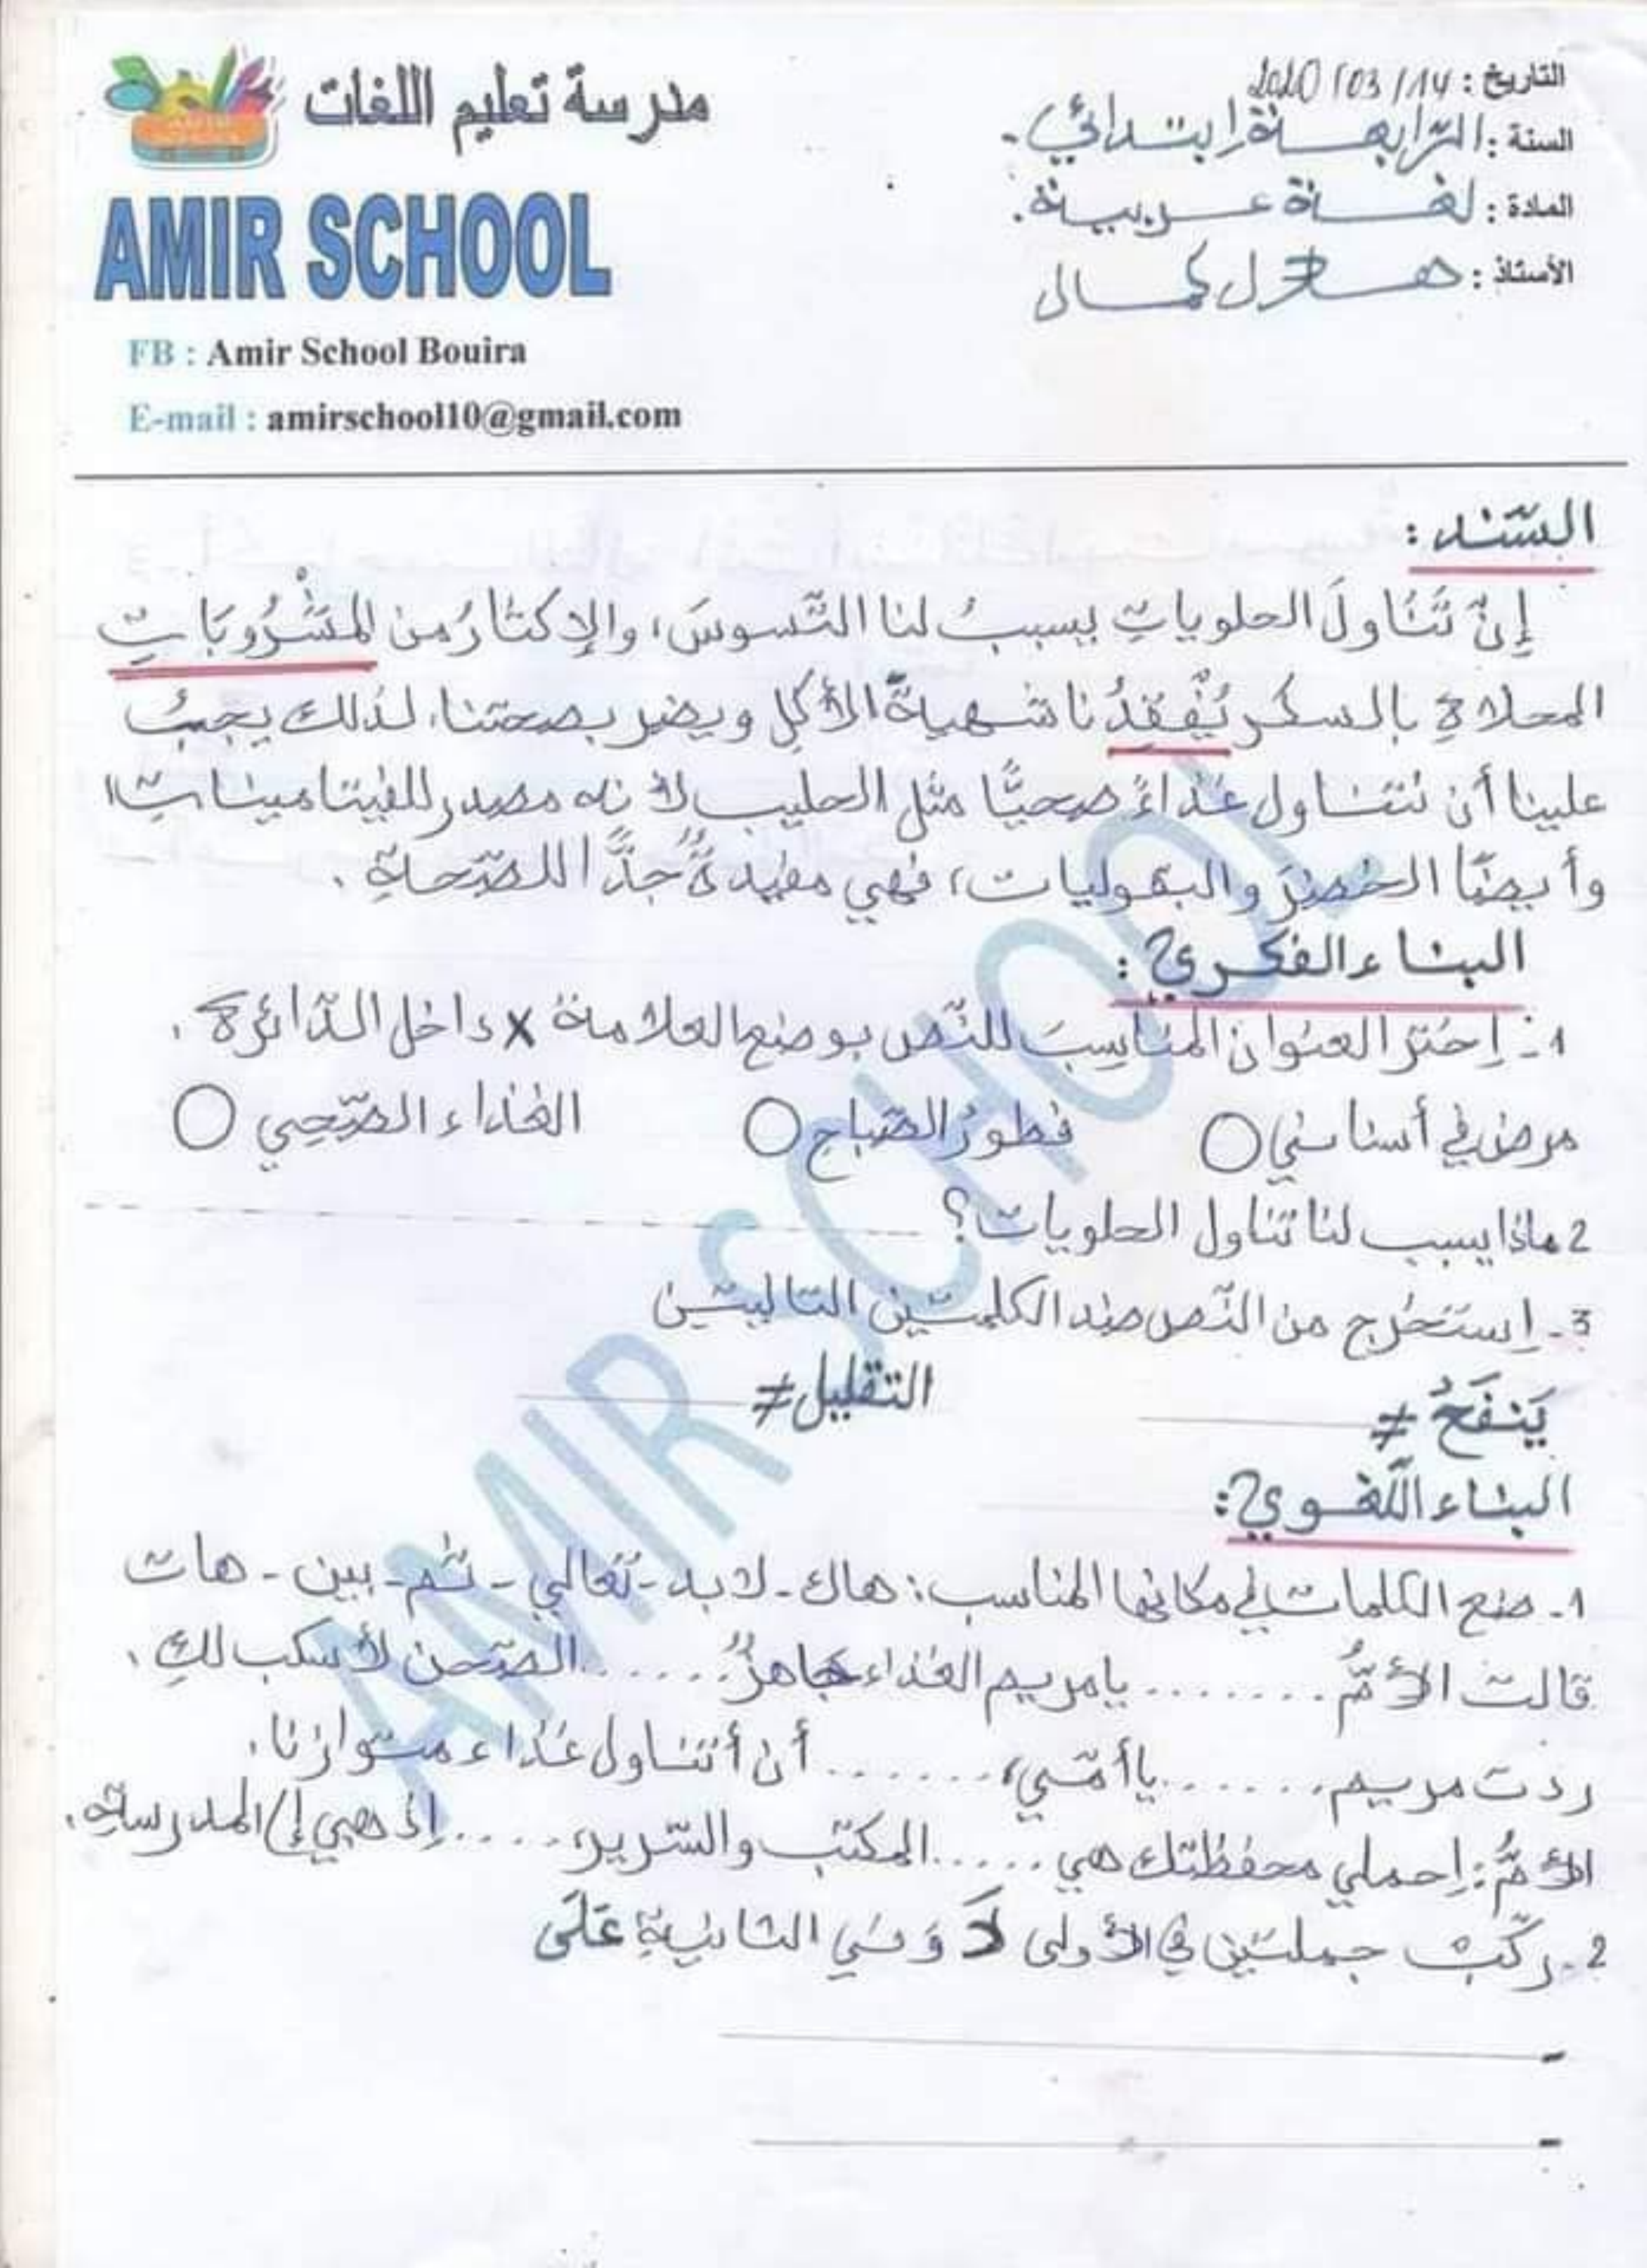 التاريخ : 2020/03/14
السنة : الرّابعة ابتدائي.
المادة : لغة عربية.
الأستاذ : كمال
مدرسة تعليم اللغات
AMIR SCHOOL
FB : Amir School Bouira
E-mail : amirschool10@gmail.com
السّند :
إنّ تَنَاولَ الحلوياتِ يسببُ لنا التّسوسَ، والإكثارُ من المَشْرُوبَاتِ
المحلاةِ بالسكر يُفْقِدُنا شهيةَ الأكلِ ويضر بصحتنا، لذلك يجبُ
علينا أن نتناول غذاءً صحيًّا مثل الحليب لأنه مصدر للفيتامينات،
وأيضًا الخضرَ والبقوليات، فهي مفيدةٌ جدًّا للصّحةِ.
البناء الفكري :
1- إختر العنوان المناسبَ للنّص بوضع العلامة x داخل الدّائرة.
مرض في أسناني ○ فطورُ الصّباح ○ الغذاء الصّحي ○
2 ماذا يسبب لنا تناول الحلويات؟
3- إستَخرج من النّص ضد الكلمتين التاليتين
يَنفَعُ ≠ التقليل ≠
البناء اللّغوي :
1- ضع الكلمات في مكانها المناسب : هاك - لابد - تعالي - ثم - بين - هات
قالت الأمُّ ........ يا مريم الغذاء جاهزٌ ...... الصّحن لأسكب لكِ.
ردت مريم ...... يا أمّي، ....... أن أتناول غذاء متوازنا.
الأمُّ : إحملي محفظتك هي ..... المكتب والسّرير، ..... إذهبي إلى المدرسةِ.
2- ركّبْ جملتين في الأولى لاَ وَ في الثانيةِ عَلَى
-
-
AMIR SCHOOL